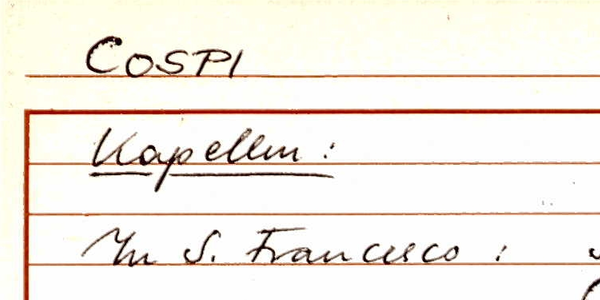 COSPI
Kapellen:
In S. Francesco: